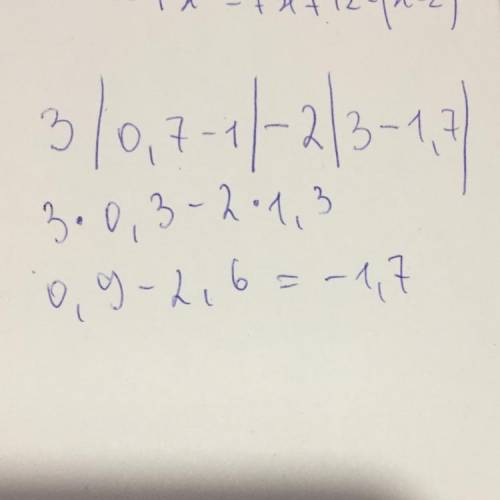 3|0,7-1|-2|3-1,7|
3·0,3-2·1,3
0,9-2,6=-1,7